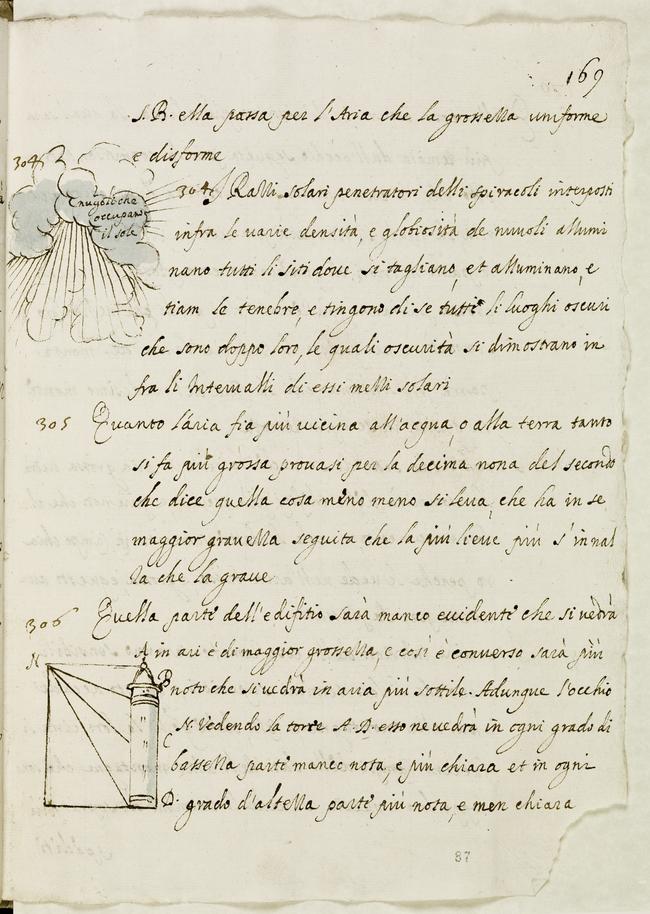 169
S. R. ella passa per l'Aria che la grossezza uniforme
e disforme
304
nugoli che
occupano
il sole
304 Razzi solari penetratori delli spiracoli interposti
infra le varie densità, e globiosità de nuvoli allumi
nano tutti li siti dove si tagliano, et alluminano, e
tiam le tenebre, e tingono di se tutti li luoghi oscuri
che sono doppo loro, le quali oscurità si dimostrano in
fra li Intervalli di essi razzi solari
305 Quanto l'aria fia più vicina all'acqua, o alla terra tanto
si fa più grossa provasi per la decima nona del secondo
che dice quella cosa meno meno si leva, che ha in se
maggior gravezza seguita che la più lieve più s'innal
za che la grave
306 Quella parte dell'edifitio sarà manco evidente che si vedrà
in ari è di maggior grossezza, e così è converso sarà più
noto che si vedrà in aria più sottile. Adunque l'occhio
N. Vedendo la torre A. D. esso ne vedrà in ogni grado di
bassezza parte manco nota, e più chiara et in ogni
grado d'altezza parte più nota, e men chiara
N
A
B
C
D.
87